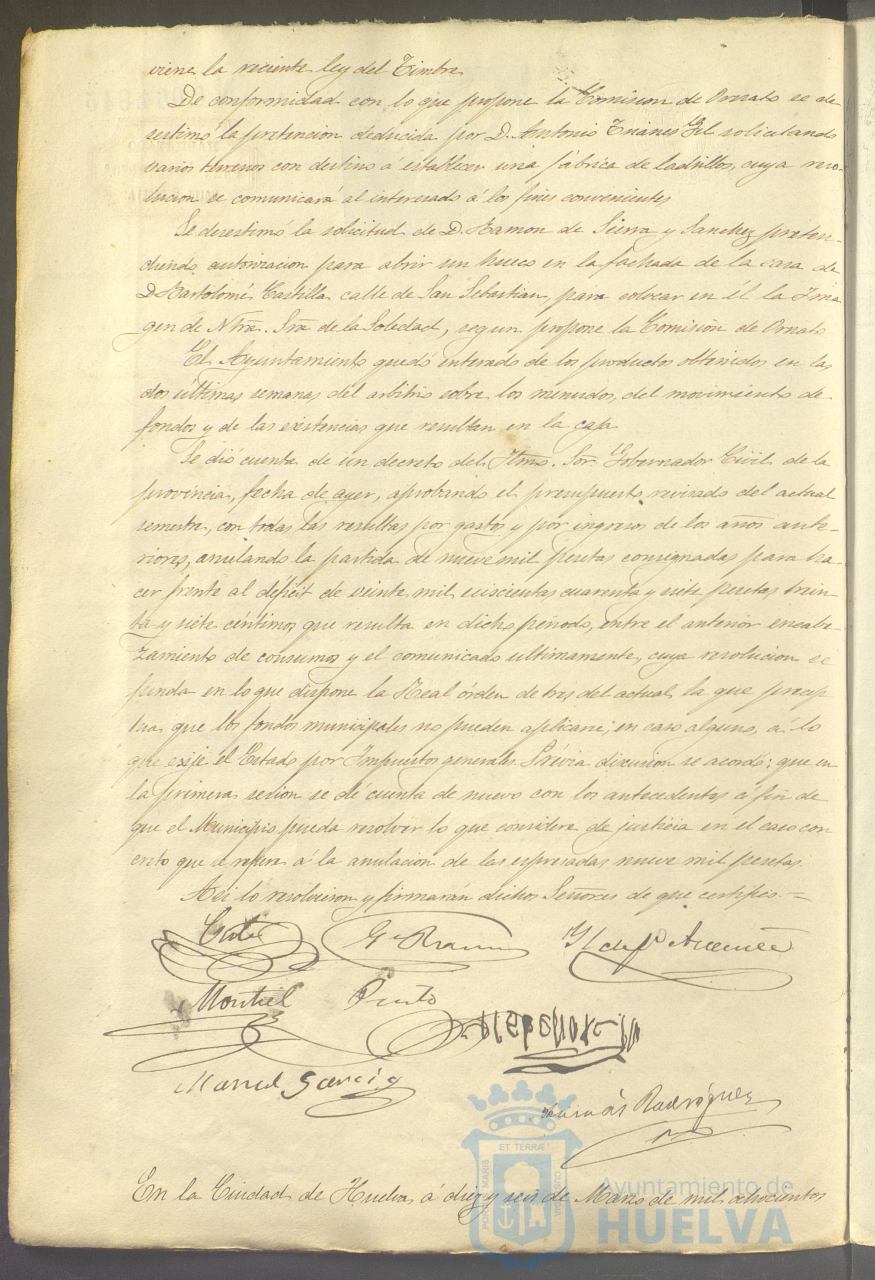 viene la reciente ley del Timbre
De conformidad con lo que propone la Comision de Ornato se de
sestimó la pretencion deducida por D. Antonio Gil solicitando
varios terrenos con destino á establecer una fábrica de ladrillos, cuya reso-
lucion se comunicará al interesado á los fines convenientes
Se desestimó la solicitud de D. Ramon de Sierra y Sanchez preten-
diendo autorizacion para abrir un hueco en la fachada de la casa de
D. Bartolomé Castilla calle de San Sebastian, para colocar en él la Imá
gen de Ntra. Sra de la Soledad, segun propone la Comision de Ornato
El Ayuntamiento quedó enterado de los productos obtenidos en las
dos últimas semanas del arbitrio sobre los menudos, del movimiento de
fondos y de las existencias que resultan en la caja
Se dió cuenta de un decreto del Iltmo. Sor. Gobernador Civil de la
provincia, fecha de ayer, aprobando el presupuesto revisado del actual
semestre, con todas las resultas por gastos y por ingresos de los años ante-
riores, anulando la partida de nueve mil pesetas consignadas para ha
cer frente al déficit de veinte mil seiscientas cuarenta y siete pesetas trein-
ta y siete céntimos que resulta en dicho período, entre el anterior encabe-
zamiento de consumos y el comunicado ultimamente, cuya resolucion se
funda en lo que dispone la Real órden de tres del actual la que precep
tua que los fondos municipales no pueden aplicarse, en caso alguno, á lo
que exije el Estado por Impuestos generales. Prévia discusion se acordó: que en
la primera sesion se dé cuenta de nuevo con los antecedentes á fin de
que el Municipio pueda resolver lo que considere de justicia en el caso con
creto que se refiere á la anulacion de las espresadas nueve mil pesetas.
Asi lo resolvieron y firmarán dichos Señores de que certifico.=
Montiel Pinto
Manuel Garcia
Tomás Rodríguez
ET TERRÆ
PORTUS MARIS
CUSTODIA
Ayuntamiento de
HUELVA
En la Ciudad de Huelva á diez y seis de Marzo de mil ochocientos